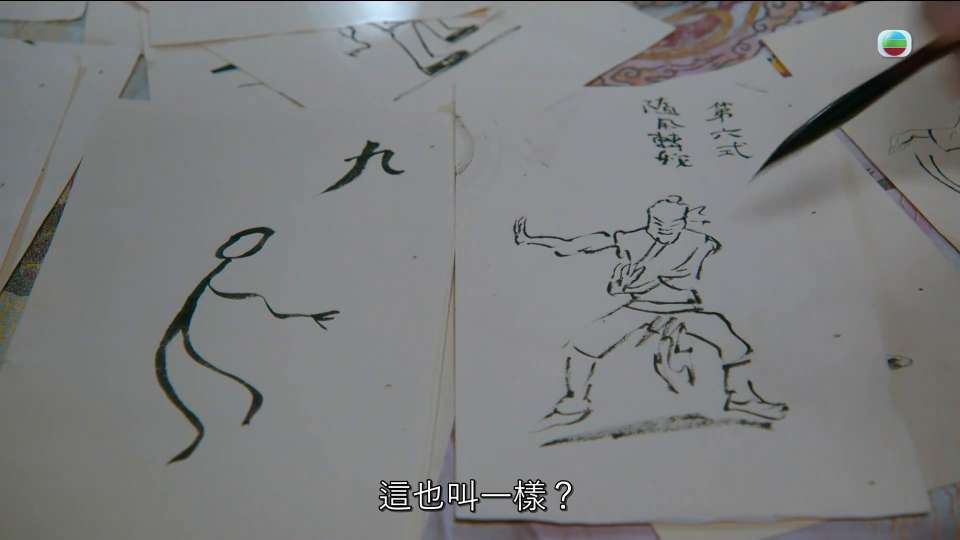 九
第六式
隨風轉
這也叫一樣？